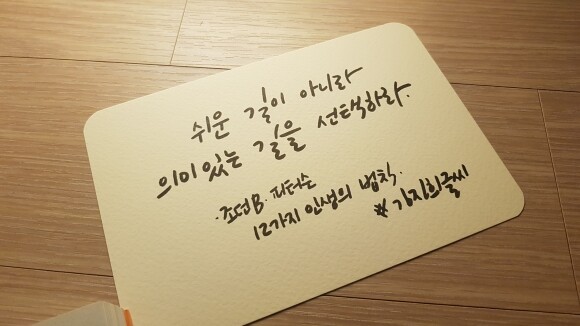 쉬운 길이 아니라
의미있는 길을 선택하라.
·조던B. 피터슨
12가지 인생의 법칙.
#강지희글씨